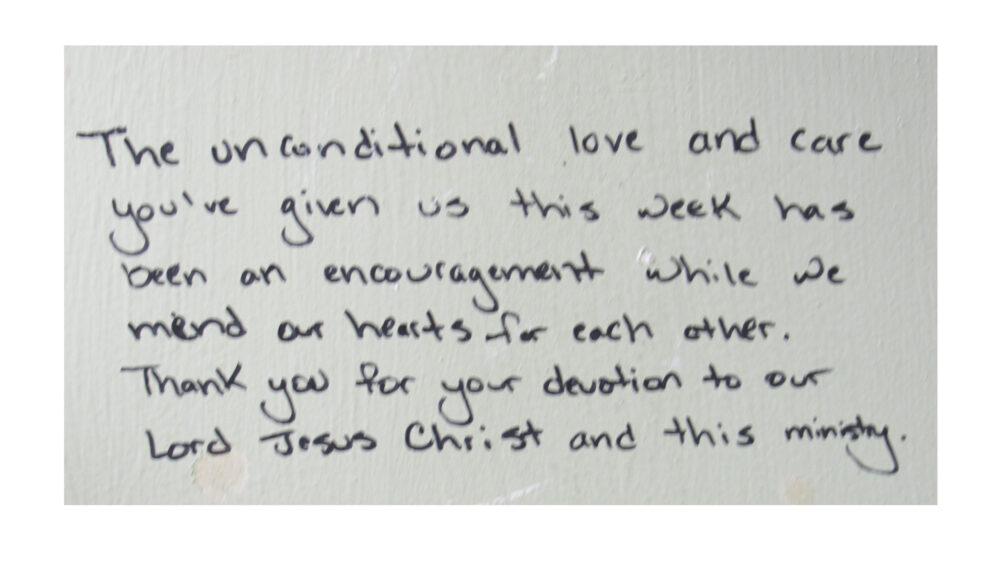 The unconditional love and care
you've given us this week has
been an encouragement while we
mend our hearts for each other.
Thank you for your devotion to our
Lord Jesus Christ and this ministry.